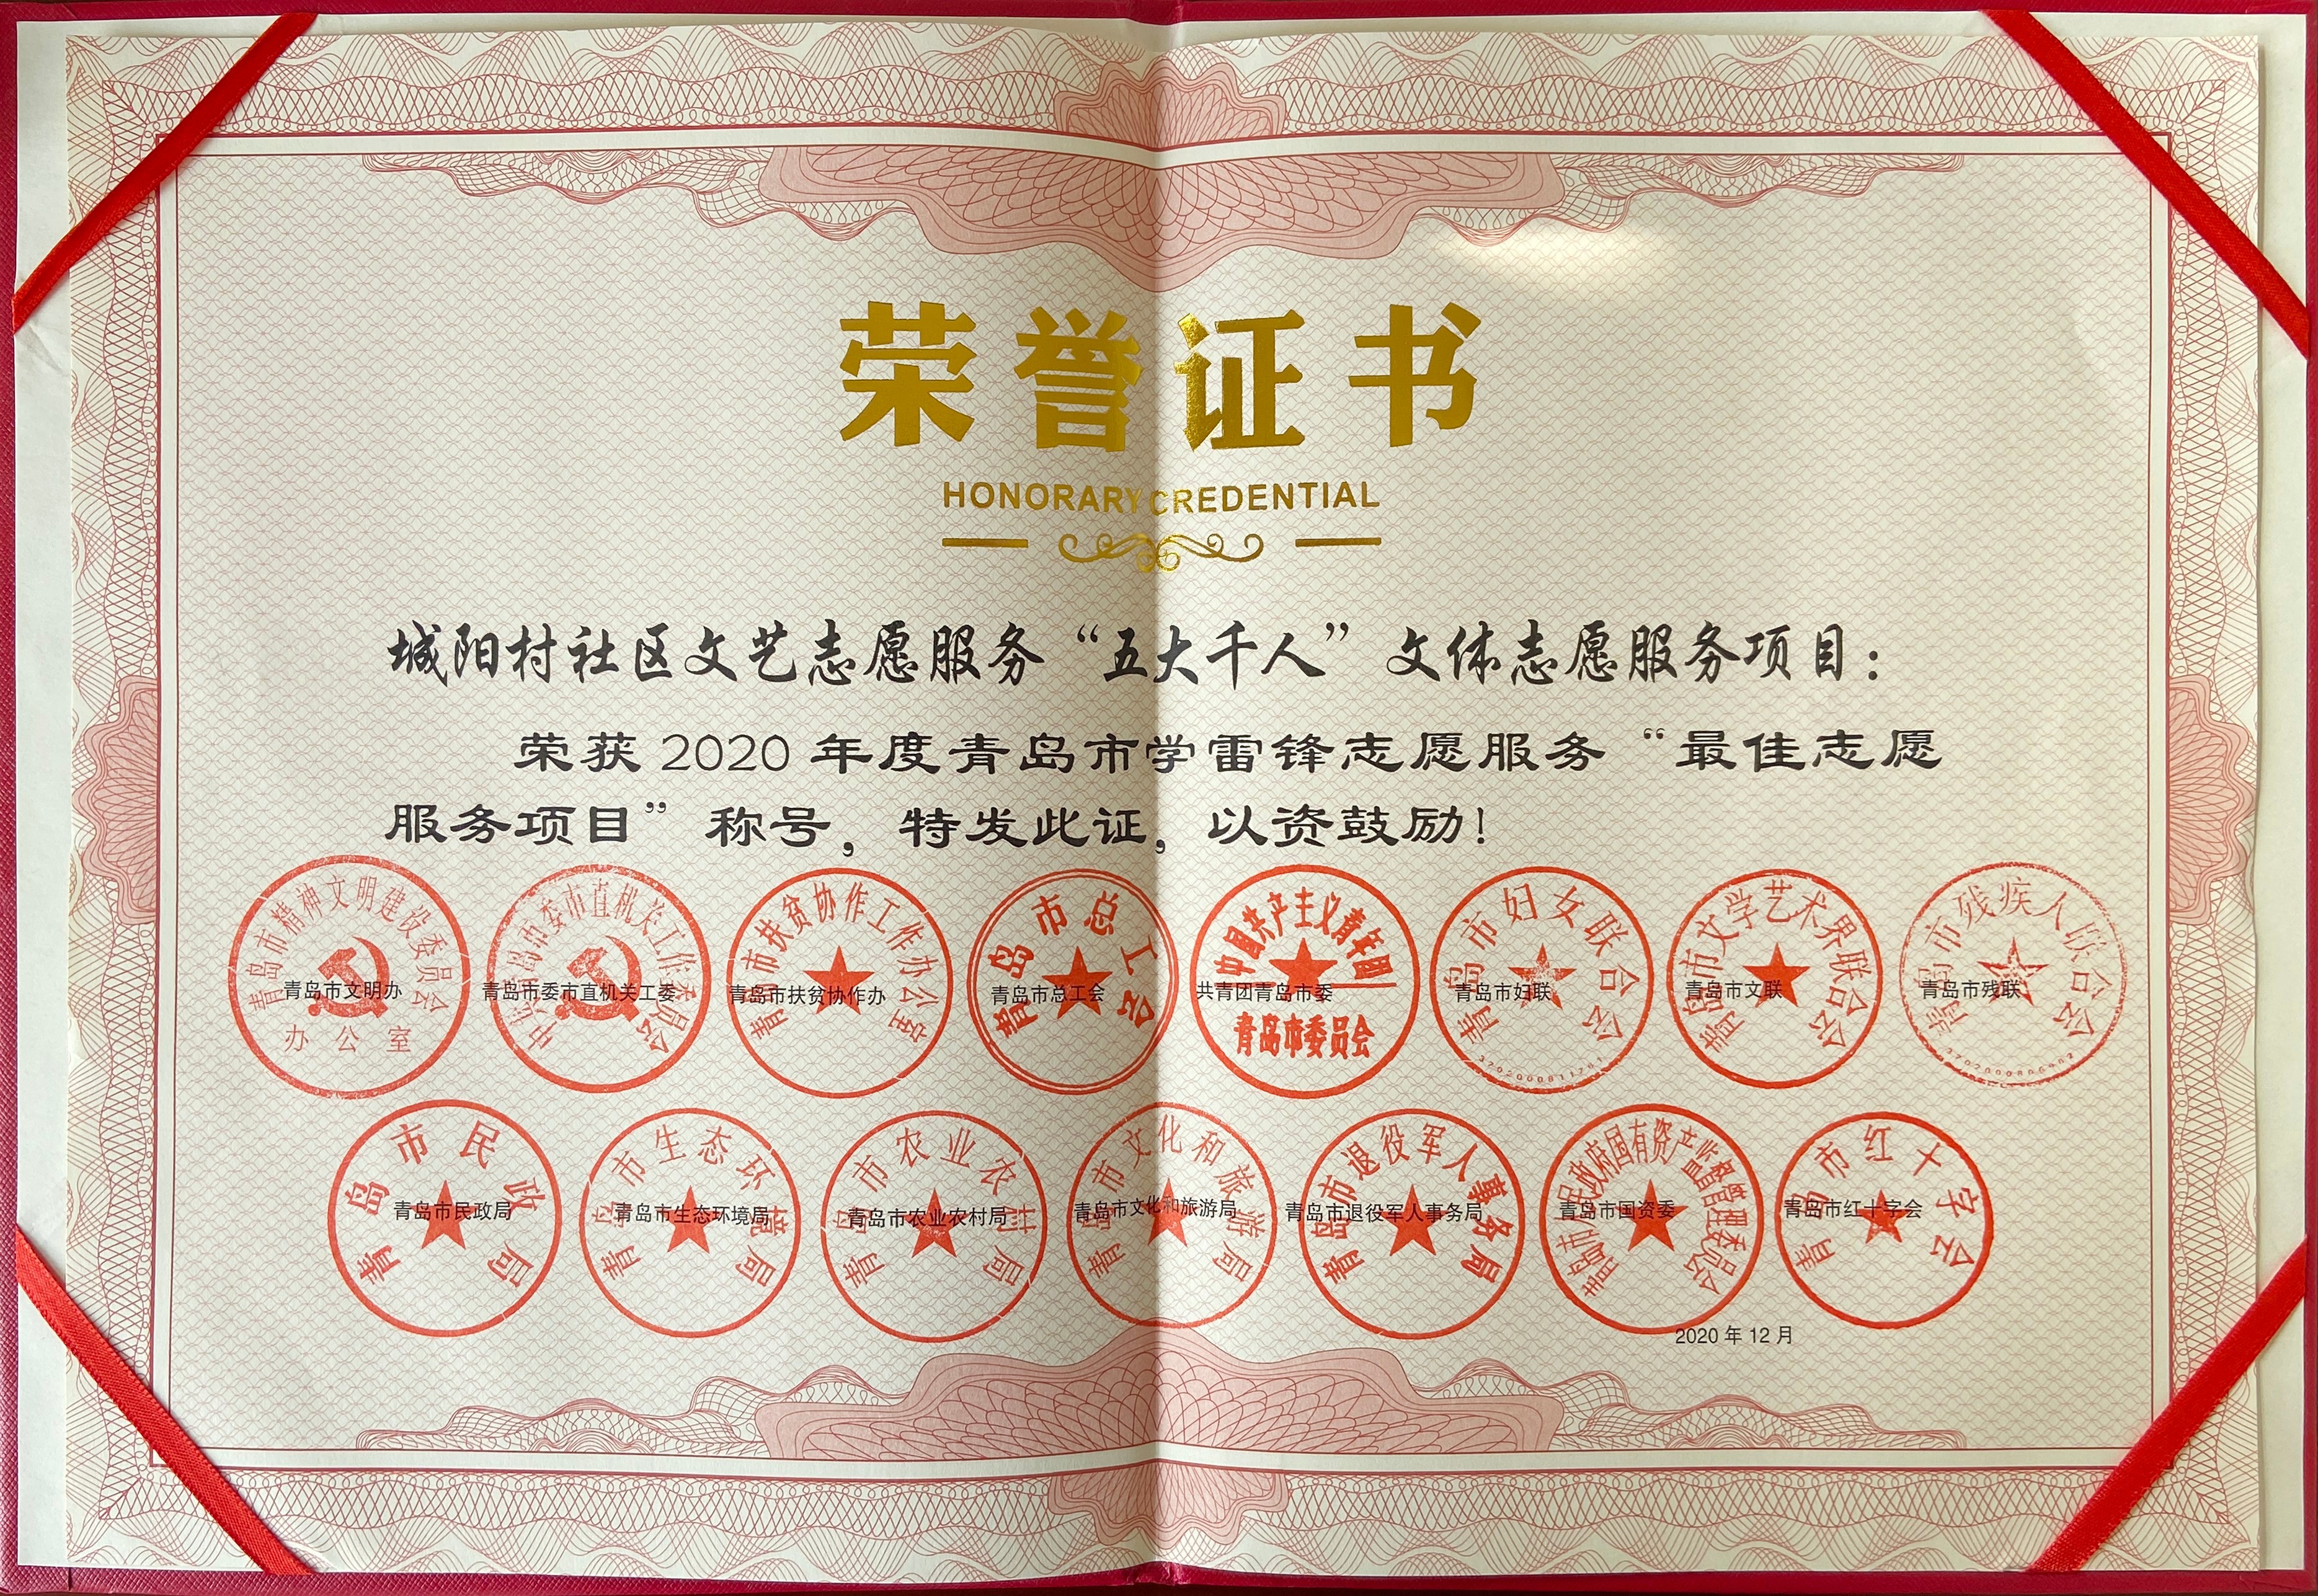 荣誉证书
HONORARY CREDENTIAL
城阳村社区文艺志愿服务“五大千人”文体志愿服务项目：
荣获2020年度青岛市学雷锋志愿服务“最佳志愿
服务项目”称号，特发此证，以资鼓励！
青岛市精神文明建设委员会
办公室
青岛市文明办
中共青岛市委市直机关工作委员会
青岛市委市直机关工委
青岛市扶贫协作工作办公室
青岛市扶贫协作办
青岛市总工会
青岛市总工会
中国共产主义青年团
青岛市委员会
共青团青岛市委
青岛市妇女联合会
青岛市妇联
青岛市文学艺术界联合会
青岛市文联
青岛市残疾人联合会
青岛市残联
青岛市民政局
青岛市民政局
青岛市生态环境局
青岛市生态环境局
青岛市农业农村局
青岛市农业农村局
青岛市文化和旅游局
青岛市文化和旅游局
青岛市退役军人事务局
青岛市退役军人事务局
青岛市人民政府国有资产监督管理委员会
青岛市国资委
青岛市红十字会
青岛市红十字会
2020年12月